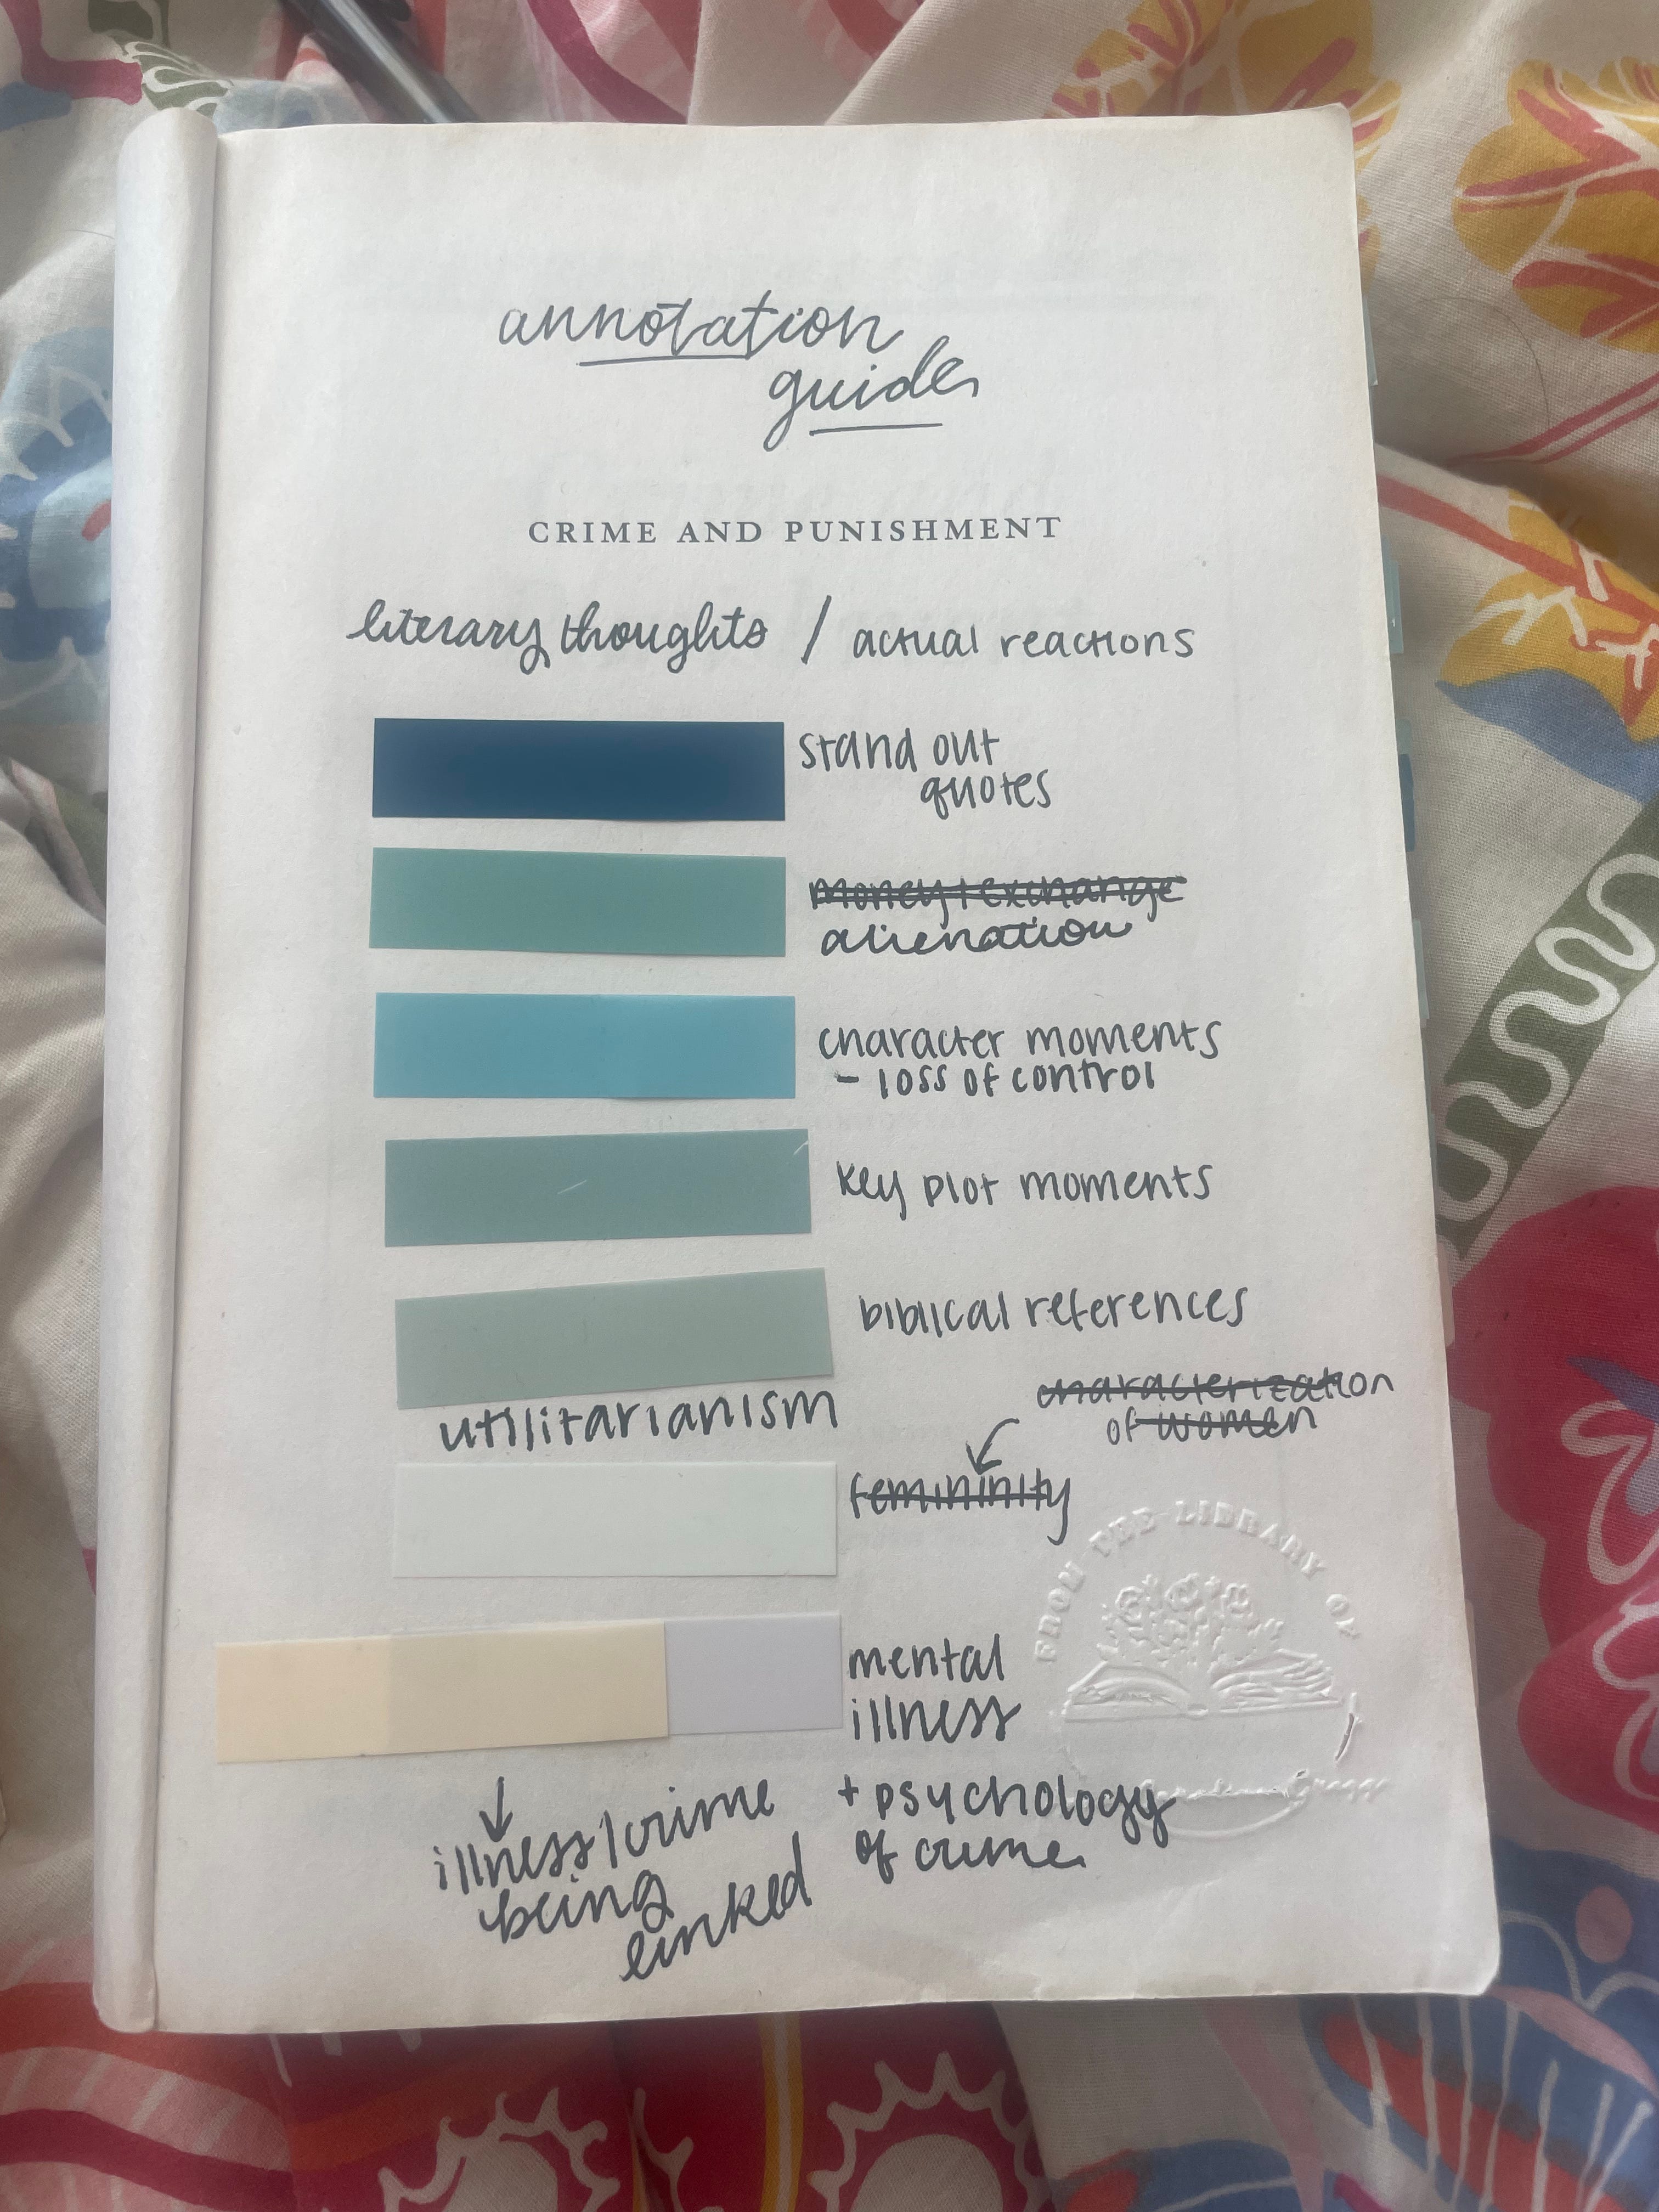 annotation
guide
CRIME AND PUNISHMENT
literary thoughts / actual reactions
stand out
quotes
money + exchange
alienation
character moments
- loss of control
key plot moments
biblical references
characterization
of women
utilitarianism
femininity
FROM THE LIBRARY OF
mental
illness
+ psychology
of crime
illness/crime
being
linked